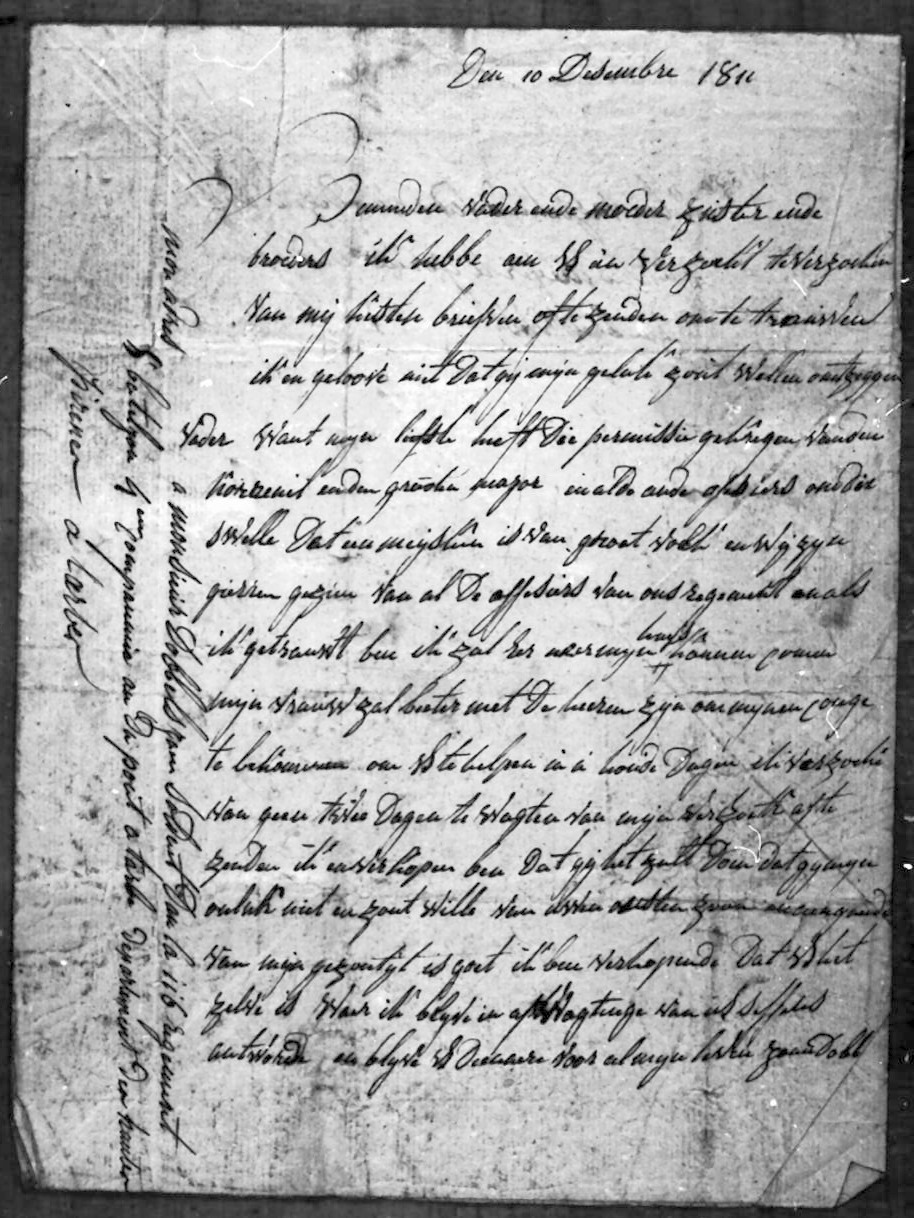 Den 10 Desembre 1811
Beminden vader ende moeder zuster ende
broeders ik hebbe aen UE een verzoekt te verzoeken
van mij briefven of te zenden om te trauwen
ik en geloove niet Dat gij mijn geluk zout willen ontzeggen
vader want mijn liefste heeft Die permissie gekregen van den
korreneil en den grooten major en al de ande offesiers om die
swille Dat een meijsken is van groot volk en wij zijn
gieren gezien van al De offesiers van ons regement en als
ik getrauwt ben ik zal naer mijn huijs konnen comen
mijn vrauw zal beter met De heeren zijn om mijnen conge
te bekommen om UE te helpen in u houde Dagen ik verzoeke
van geen twee Dagen te wagten van mijn verzoek af te
zenden ik en verhopen ben Dat gij het zult Doen dat gij mijn
onluk niet en zout wille van uwen outsten zoon
van mijn gezontijt is goet ik ben verhopende Dat UE het
zelve is waer ik blijve in afwagtinge van UE seffens
antworde en blijve UE Dienaere voor al mijn leven Dobb
mon adres a monsieur Dobbels soldaet Dan la 116 regement
8 bateljon 4 compannie au Depoit a tarbe Departement den hautes
pirenee a tarbes